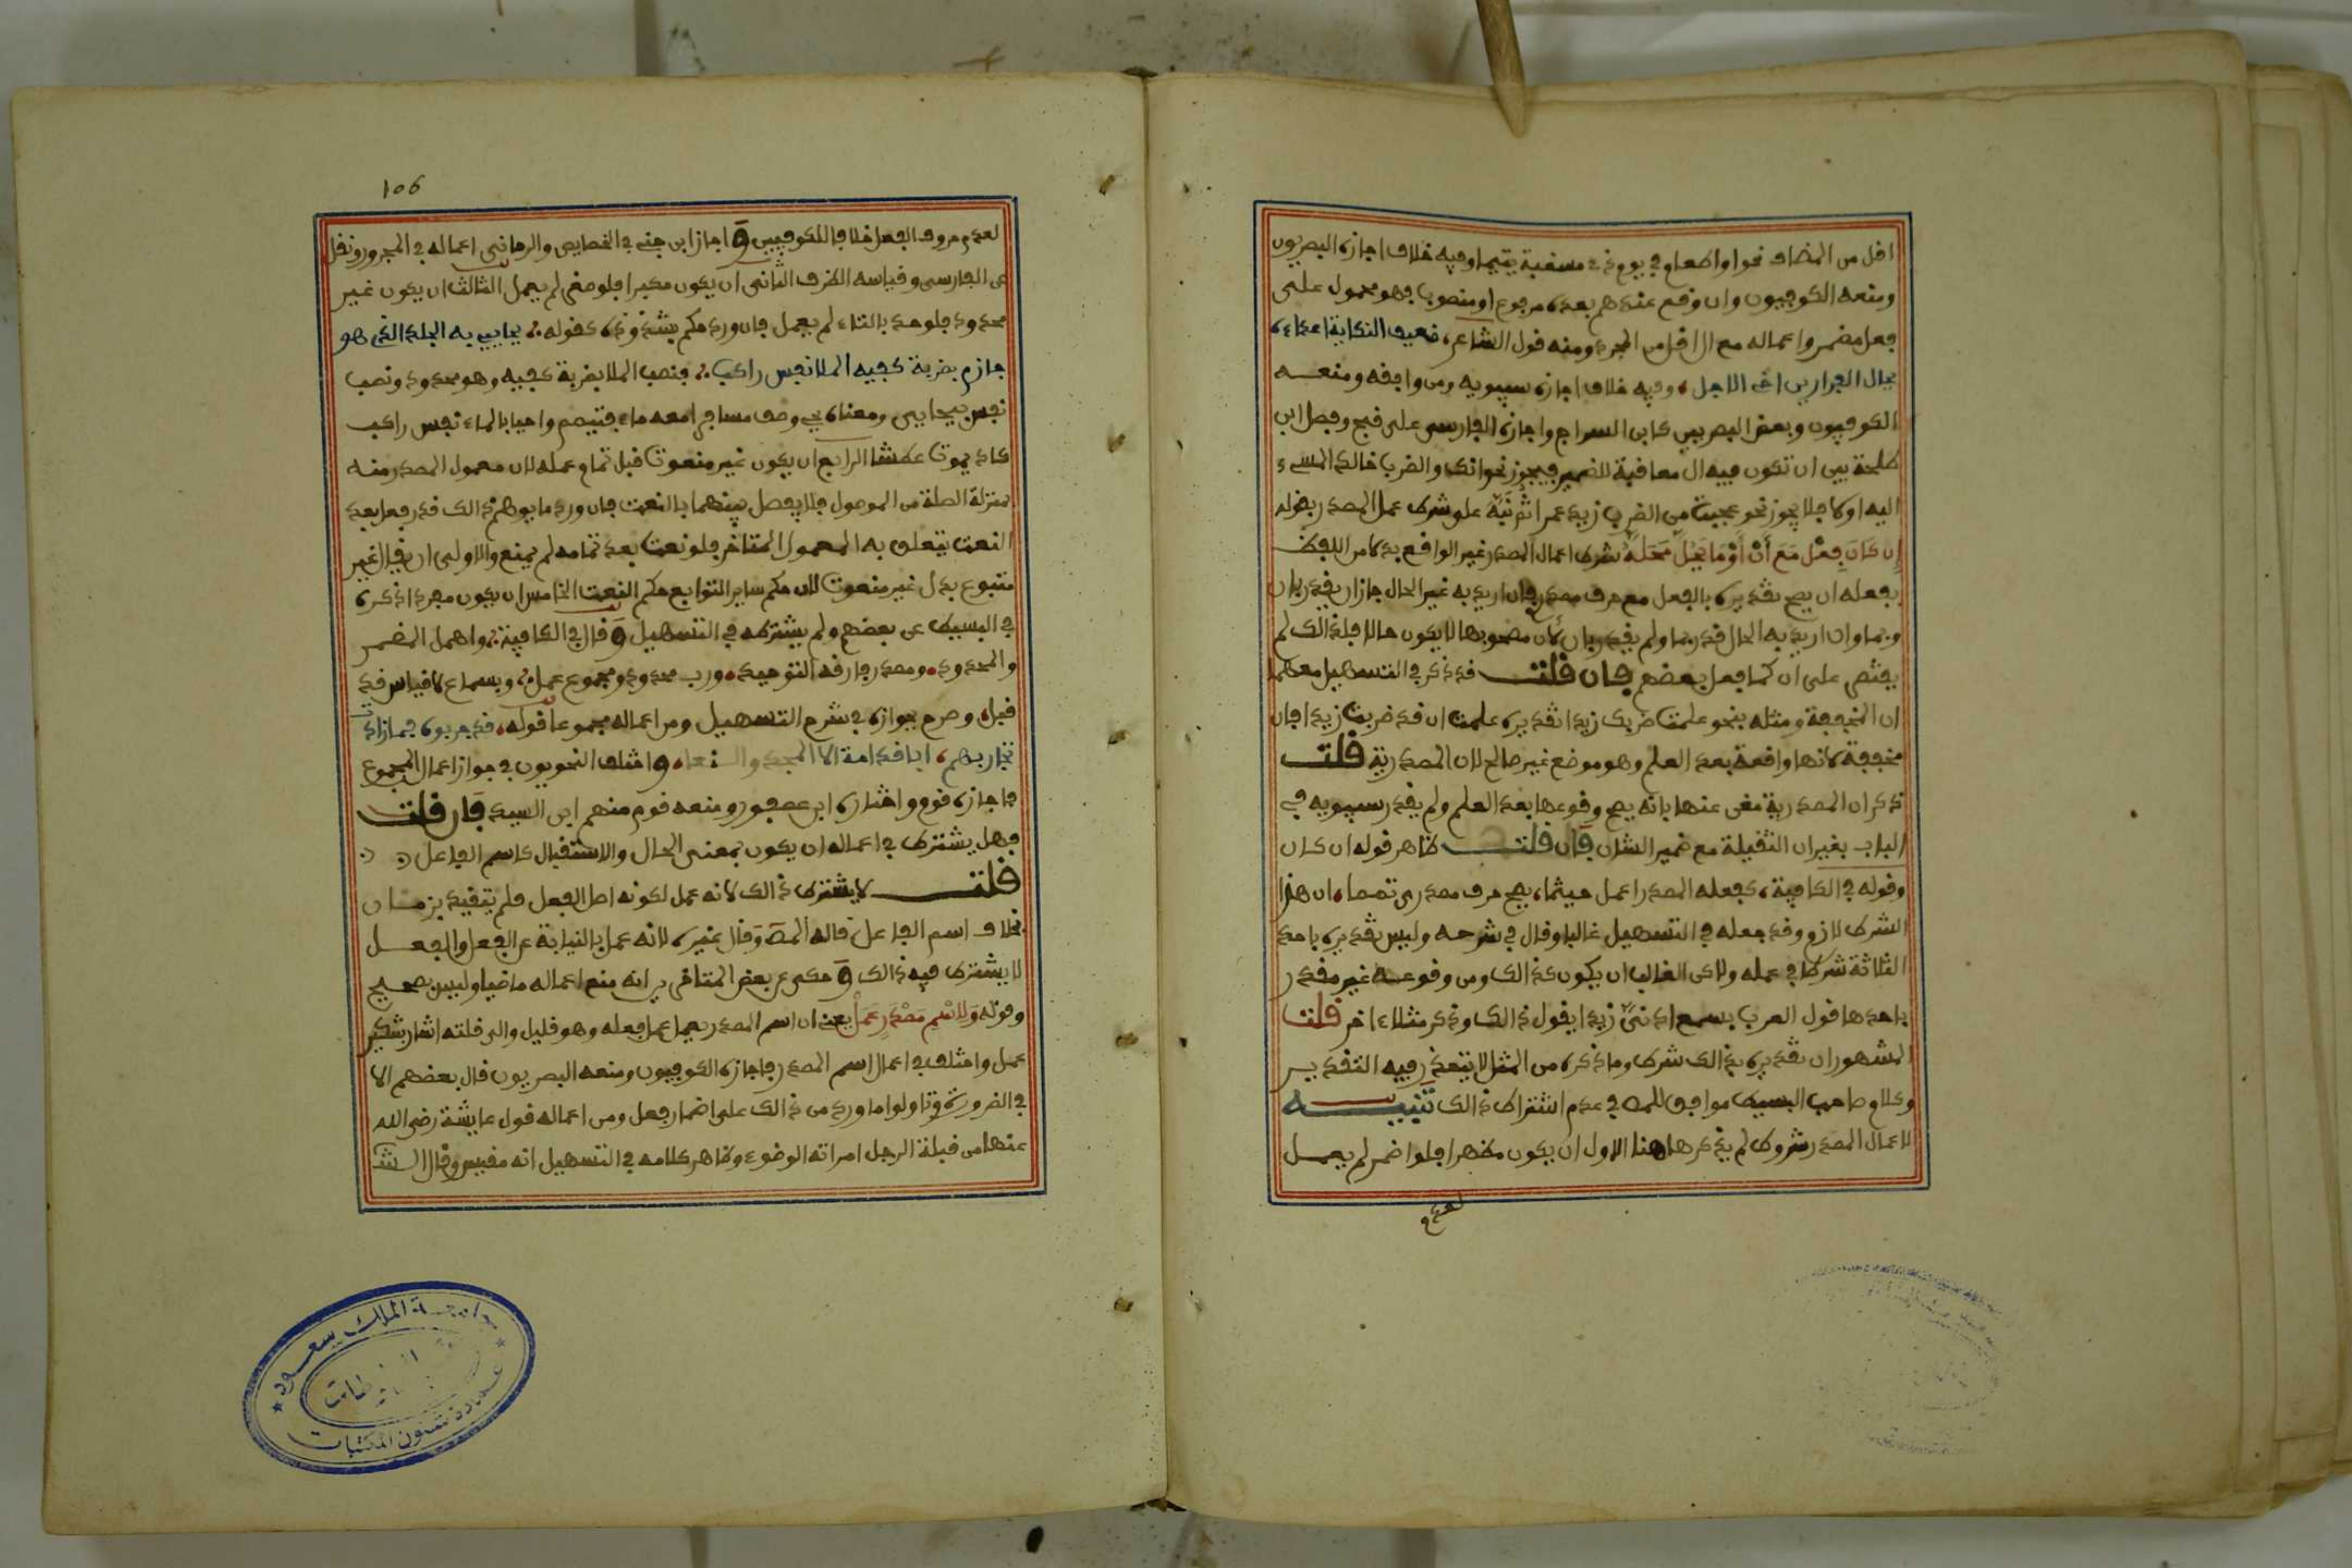 اقل من المضاف نحو او اطعام في يوم ذي مسغبة يتيما وفيه خلاف اجازه البصريون
ومنعه الكوفيون وان وقع عندهم بعده مرفوع او منصوب فهو محمول على
فعل مضمر واعماله مع ال اقل من المجرد ومنه قول الشاعر، ضعيف النكاية اعداءه
يخال الفرار يراخى الاجل، وفيه خلاف اجازه سيبويه ومن وافقه ومنعـــه
الكوفيون وبعض البصريين كابن السراج واجازه الفارسى على قبح وفصل ابن
طلحة بين ان تكون فيه ال معاقبة للضمير فيجوز نحو انك والضرب خالد المسىء
اليه اولا فلا يجوز نحو عجبت من الضرب زيد عمرا ثم نبه على شرط عمل المصدر بقوله
إن كَانَ فِعْل مَعَ أنْ أَوْ مَا يَحُلّ مَحَلَّهُ شرط اعمال المصدر غير الواقع بدلا من اللفظ
بفعله ان يصح تقديره بالفعل مع حرف مصدرى فان اريد به غير الحال جاز ان يقدر بان
وبما وان اريد به الحال قدر بما ولم يقدر بان لأن مصحوبها لا يكون حالا فلذالك لم
يقتصر على ان كما فعل بعضهم فــان قلتــــ قد ذكر في التسهيل معهما
ان المخففة ومثله بنحو علمت ضربك زيدا تقديره علمت ان قد ضربت زيدا فان
مخففة لانها واقعة بعد العلم وهو موضع غير صالح لان المصدرية قلتـــ
ذكر ان المصدرية مغن عنها بانه يصح وقوعها بعد العلم ولم يقدر سيبويه في
الباب بغير ان الثقيلة مع ضمير الشان فان قلتـــ ظاهر قوله ان كان
وقوله في الكافية، كفعله المصدر اعمل حيثما، يصح حرف مصدرى تمما، ان هذا
الشرط لازم وقد جعله في التسهيل غالبا وقال في شرحه وليس تقديره باحد
الثلاثة شرطا في عمله ولاكن الغالب ان يكون كذالك ومن وقوعــه غير مقدر
باحدها قول العرب سمع اذنى زيدا يقول ذالك وذكر مثلا ءاخر قلت
المشهور ان تقديره بذالك شرط وما ذكره من المثل لا يتعذر فيه التقديـــر
وكلام صاحب البسيط موافق للمص في عدم اشتراط ذالك تَنْبيــــه
لاعمال المصدر شروط لم يذكرها هنا الاول ان يكون مظهرا فلو اضمر لم يعمــل
لعدم
106
لعدم حروف الفعل خلافا للكوفيين وَاجاز ابن جنى في الخصايص والرمانى اعماله في المجرور ونقل
عن الفارسى وقياسه الظرف الثانى ان يكون مكبرا فلو صغر لم يعمل الثالث ان يكون غير
محدود فلو حد بالتاء لم يعمل فان ورد حكم بشذوذه كقوله، يحايى به الجلد الذى هو
حازم بضربة كفيه الملا نفس راكب، فنصب الملا بضربة كفيه وهو محدود ونصب
نفس بيحايى ومعناه يحيى وصف مسافرا معه ماء فتيمم واحيا بالماء نفس راكب
كاد يموت عطشا الرابع ان يكون غير منعوت قبل تمام عمله لان معمول المصدر منــه
بمنزلة الصلة من الموصول فلا يفصل بينهما بالنعت فان ورد ما يوهم ذالك قدر فعل بعد
النعت يتعلق به المعمول المتاخر فلو نعت بعد تمامه لم يمنع والاولى ان يقال غير
متبوع بدل غير منعوت لان حكم ساير التوابع حكم النعت الخامس ان يكون مفردا ذكره
في البسيط عن بعضهم ولم يشترطه في التسهيل وَقال في الكافية، واهمل المضمر
والمحدود، ومصدر فارقه التوحيد، ورب محدود ومجموع عمل، وبسماع لا قياس قد
قبل، وصرح بجوازه في شرح التسهيل ومن اعماله مجموعا قوله، قد جربوه فما زادت
تجاربهم، ابا قدامة الا المجد والفنعا، وَاختلف النحويون في جواز اعمال المجموع
فاجازه قوم واختاره ابن عصفور ومنعه قوم منهم ابن السيد فان قلتـــ
فهل يشترط في اعماله ان يكون بمعنى الحال والاستقبال كاسم الفاعل
قلتـــــ لا يشترط ذالك لانه عمل لكونه اصل الفعل فلم يتقيد بزمــان
بخلاف اسم الفاعل قاله المص وَقال غيره لانه عمل بالنيابة عن الفعل والفعــل
لا يشترط فيه ذالك وَحكى عن بعض المتاخرين انه منع اعماله ماضيا وليس بصحيح
وقوله وَلاِسْمِ مَصْدَرٍ عَمَلْ يعنى ان اسم المصدر يعمل عمل فعله وهو قليل والى قلته اشار بتنكير
عمل واختلف في اعمال اسم المصدر فاجازه الكوفيون ومنعه البصريون قال بعضهم الا
في الضرورة وتاولوا ما ورد من ذالك على اضمار فعل ومن اعماله قول عايشة رضى الله
عنها من قبلة الرجل امراته الوضوء وظاهر كلامه في التسهيل انه مقيس وقال الشــ
جامعة الملك سعود
عمادة شئون المكتبات